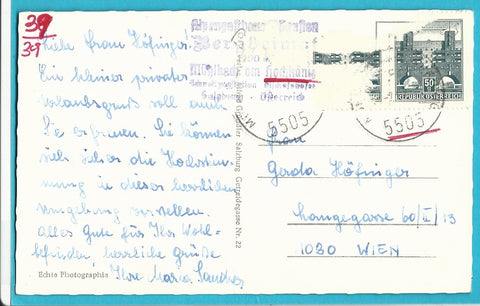 39
39
Liebe Frau Höfinger.
Ein kleiner privater
Urlaubsgruß soll auch
Sie erfreuen. Sie können
sich sicher die Hochstim-
mung in dieser herrlichen
Umgebung vorstellen.
Alles Gute für Ihr Wohl-
befinden, herzliche Grüße
Ihre Maria
Echte Photographie
Salzburg Getreidegasse Nr. 22
Alpengasthaus
Mühlbach am Hochkönig
Österreich
50
REPUBLIK ÖSTERREICH
5505
5505
Frau
Gerda Höfinger
60/II/13
1030 WIEN